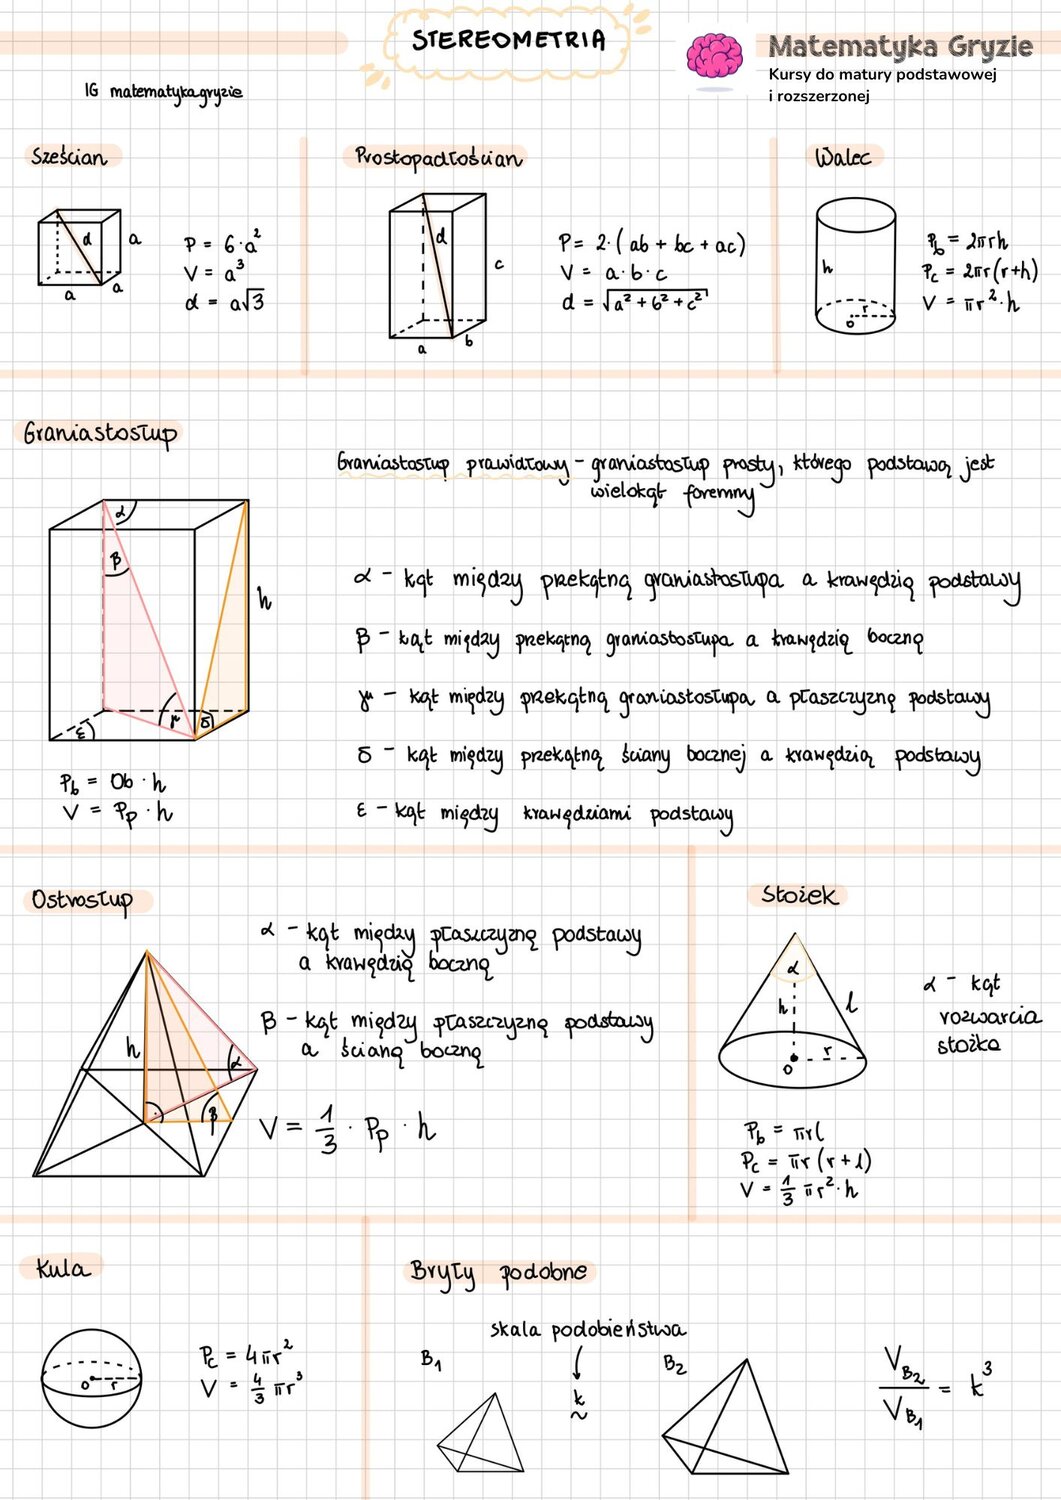 STEREOMETRIA
Matematyka Gryzie
Kursy do matury podstawowej
i rozszerzonej
IG matematykagryzie
Sześcian
d
a
a
a
P = 6·a²
V = a³
d = a√3
Prostopadłościan
d
c
b
a
P = 2·(ab + bc + ac)
V = a·b·c
d = √a² + b² + c²
Walec
h
r
o
P_b = 2πrh
P_c = 2πr(r+h)
V = πr²·h
Graniastosłup
α
β
h
γ
δ
ε
P_b = Ob · h
V = P_p · h
Graniastosłup prawidłowy – graniastosłup prosty, którego podstawą jest
wielokąt foremny
α – kąt między przekątną graniastosłupa a krawędzią podstawy
β – kąt między przekątną graniastosłupa a krawędzią boczną
γ – kąt między przekątną graniastosłupa a płaszczyzną podstawy
δ – kąt między przekątną ściany bocznej a krawędzią podstawy
ε – kąt między krawędziami podstawy
Ostrosłup
h
α
β
α – kąt między płaszczyzną podstawy
a krawędzią boczną
β – kąt między płaszczyzną podstawy
a ścianą boczną
V = 1/3 · P_p · h
Stożek
α
h
l
r
o
α – kąt
rozwarcia
stożka
P_b = πrl
P_c = πr(r+l)
V = 1/3 πr²·h
Kula
o
r
P_c = 4πr²
V = 4/3 πr³
Bryły podobne
skala podobieństwa
B₁
k
B₂
V_B₂ / V_B₁ = k³